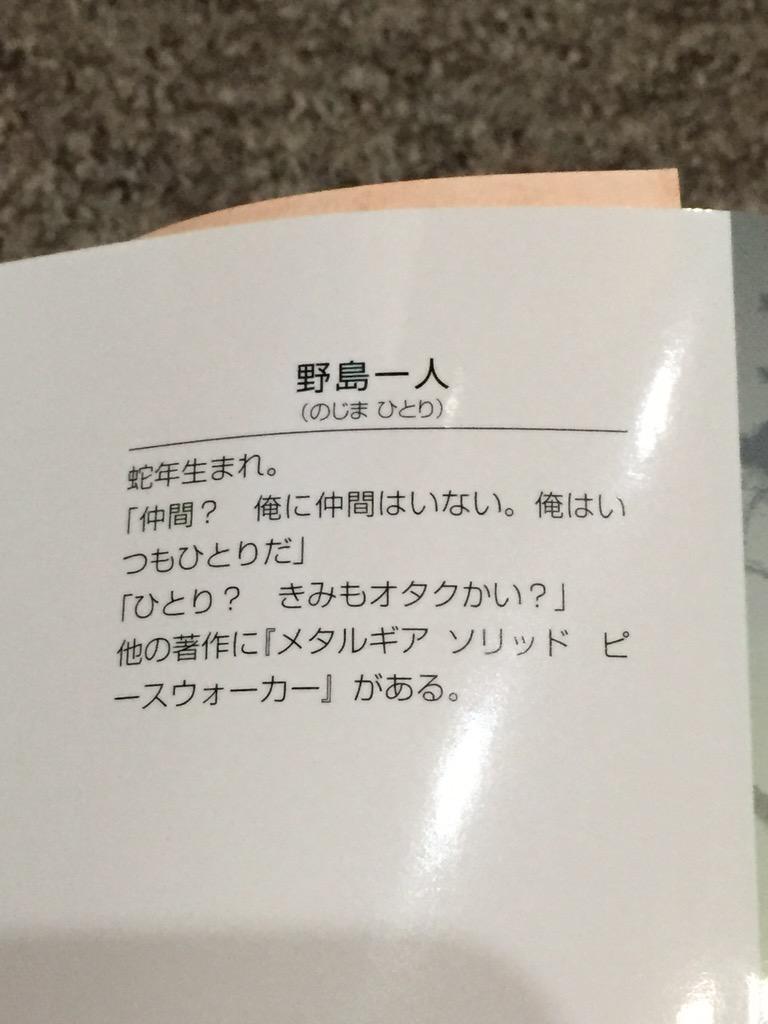 野島一人
（のじま ひとり）
蛇年生まれ。
「仲間？　俺に仲間はいない。俺はい
つもひとりだ」
「ひとり？　きみもオタクかい？」
他の著作に『メタルギア ソリッド　ピ
ースウォーカー』がある。